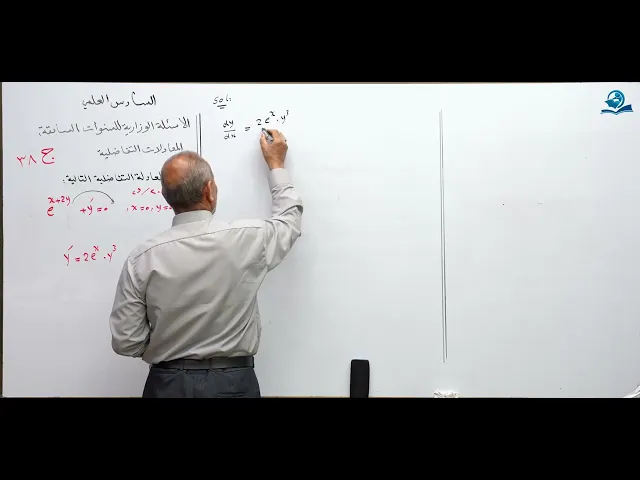 السادس العلمي
الأسئلة الوزارية للسنوات السابقة:
المعادلات التفاضلية
ح ٣٨
التفاضلية التالية:
e^{x+2y} + y′ = 0 , x=0, y=
y′ = 2e^x · y^3
Sol:
dy/dx = 2e^x · y^3